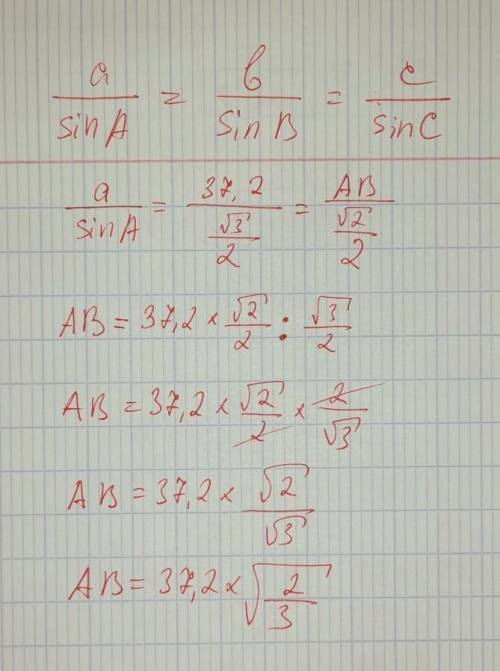 a/sin A = b/sin B = c/sin C
a/sin A = 37,2/(√3/2) = AB/(√2/2)
AB = 37,2 × √2/2 : √3/2
AB = 37,2 × √2/2 × 2/√3
AB = 37,2 × √2/√3
AB = 37,2 × √(2/3)